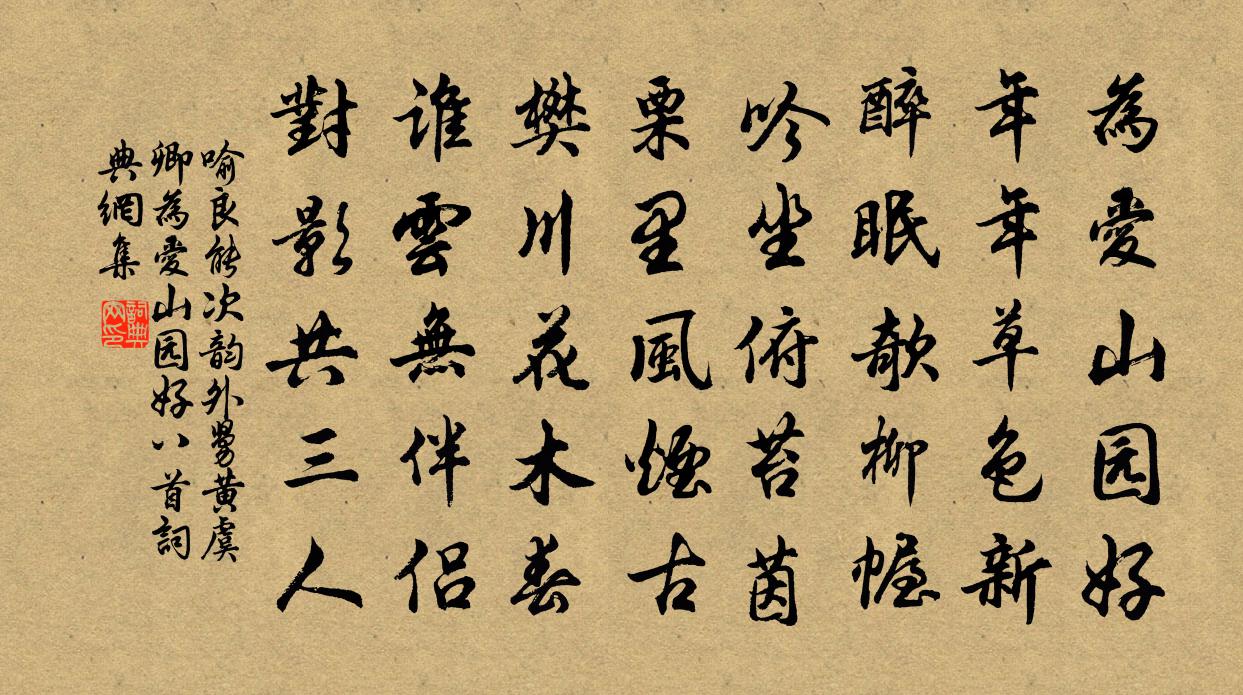 為愛山园好
年年草色新
醉眠欹柳幄
吟坐俯苔茵
栗里風煙古
樊川花木春
谁雲無伴侣
對影共三人
喻良能次韵外舅黄虞
卿為愛山园好八首詞
典網集
詞典网印